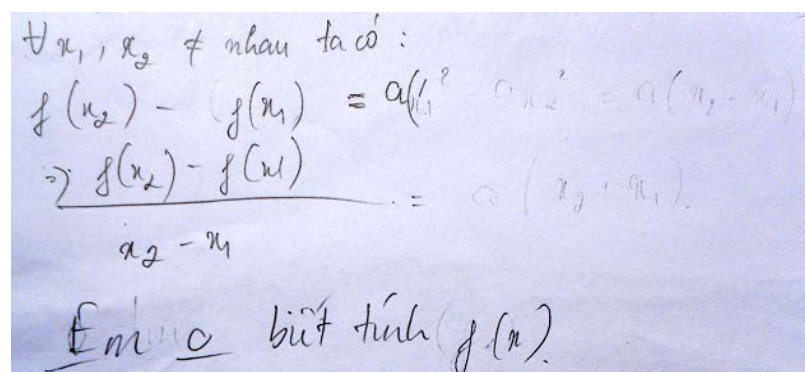 ∀ x₁, x₂ ≠ nhau ta có :
f(x₂) - f(x₁) = a(x₁² - ax₂² = a(x₂ - x₁)
=> f(x₂) - f(x1)
= a ( x₂ + x₁).
x₂ - x₁
Em o biết tính f(x).